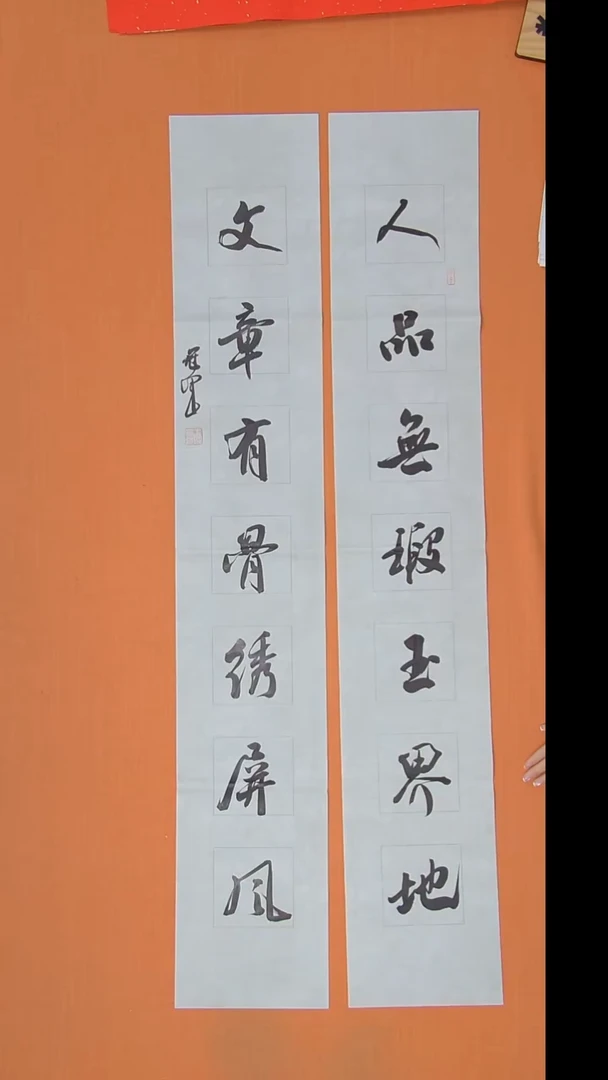 人品無瑕玉界地
文章有骨绣屏风